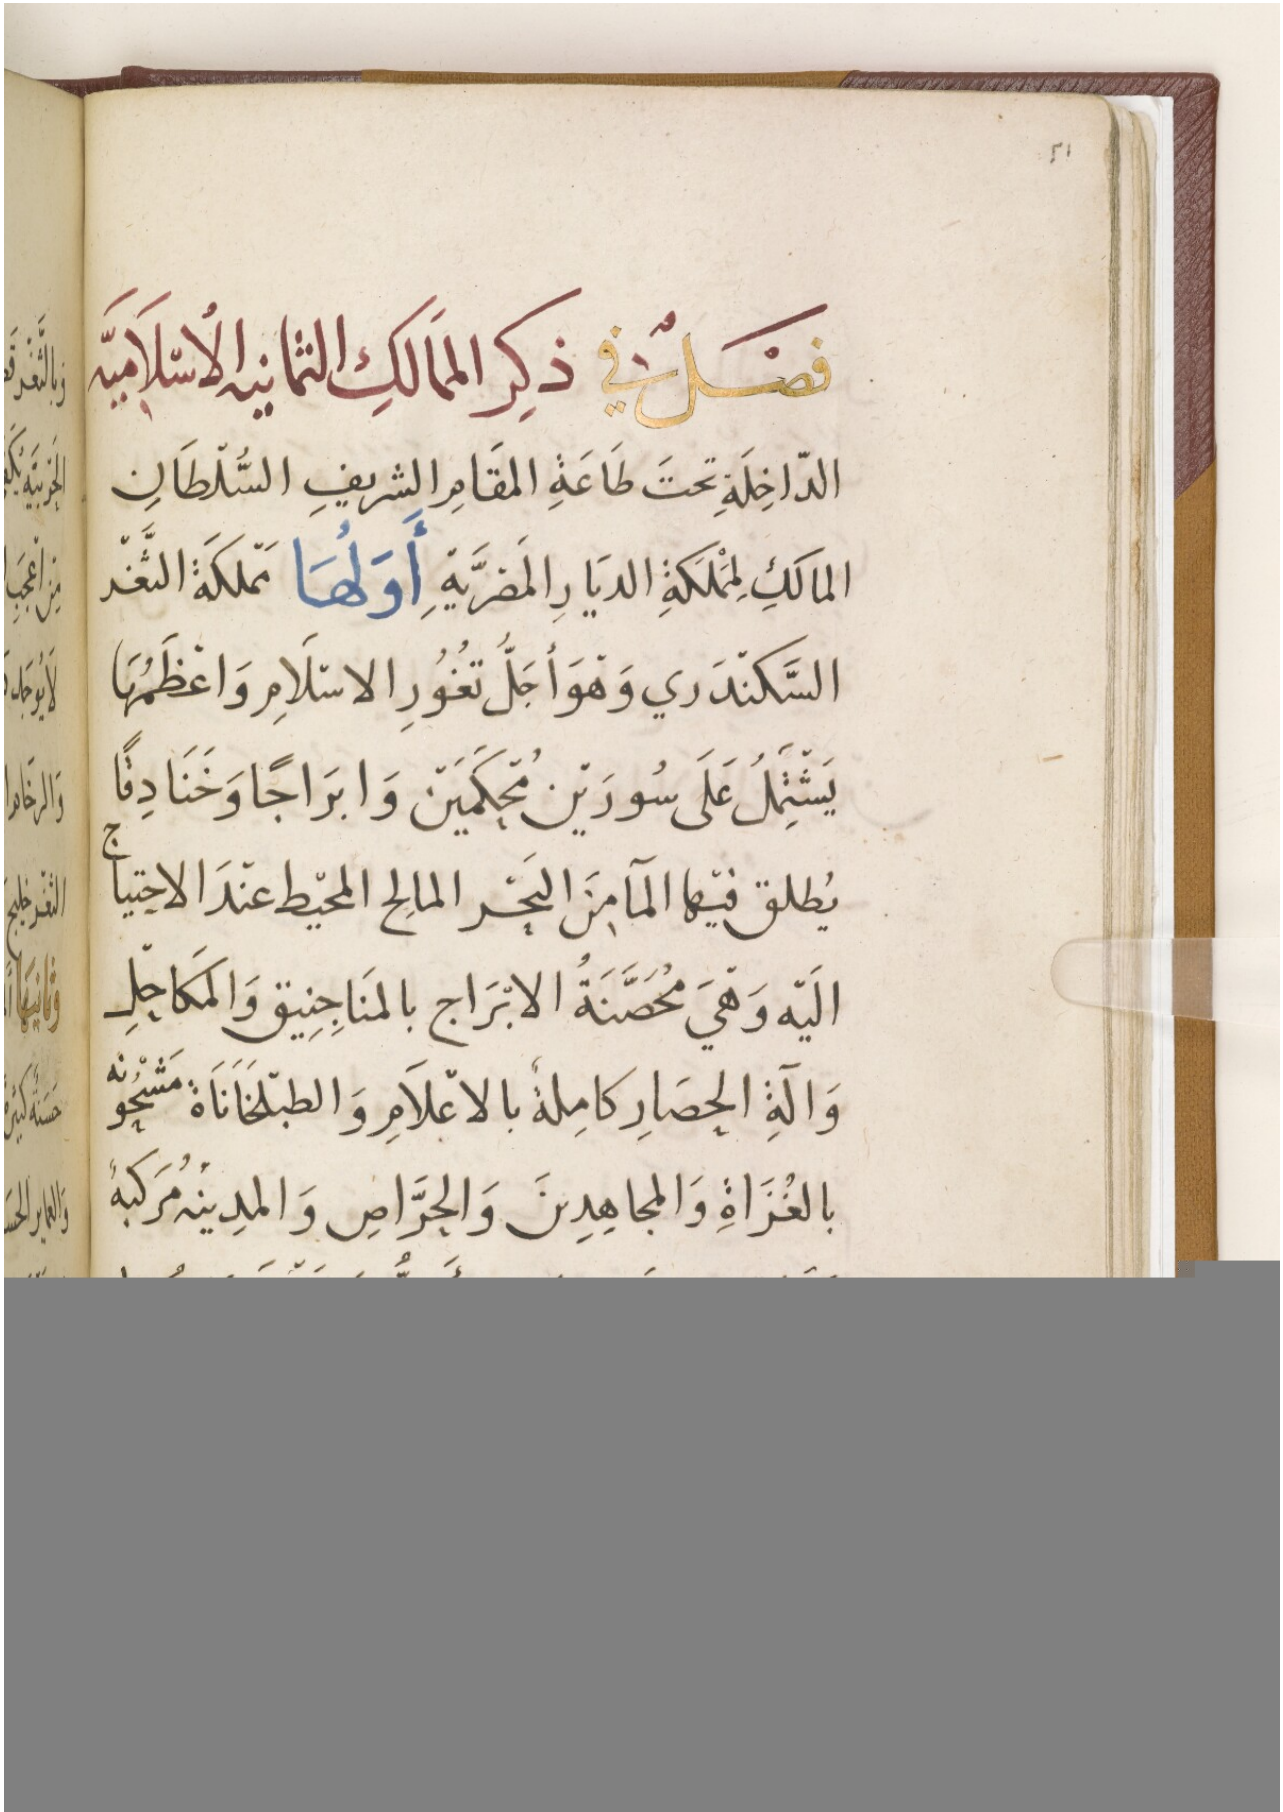 ٢١
فَصْلٌ في ذِكِر المَمَالَكِ الثمانيه الأُسْلَامِيَّه
الدّاخِلَةِ تحتَ طَاعَةِ المقَامِ الشريفِ السُّلْطَانِ
المالَكِ لِمْلَكَةِ الديَارِ المَصْرَيَّةِ أَوَلُهَا مَمْلكَةُ الثَّغْر
السَّكنْدَري وَهْوَ أجَلُّ ثُغُورِ الاسْلَامِ وَاعْظَمُهَا
يَشْتَمِلُ عَلَى سُورَيْن مُحْكَمَيَنْ وَابرَاجًا وَخَنَادِقًا
يُطلق فيْها المآ مِنَ البَحْر المالِح المحيْط عنْدَ الاحتياج
الَيْه وَهْيَ مُحُصَّنَةُ الابْرَاج بالمنَاجِنِيق وَالمكَاحِلِ
وَالَةِ الحِصَارِ كامِلةً بالاعْلَامِ وَالطبْلخَانَاَة مَشْحُونه
بالغُزَاةِ وَالمجاهِدِينَ وَالحُرَّاصِ وَالمدِينُه مُرَكبةُ